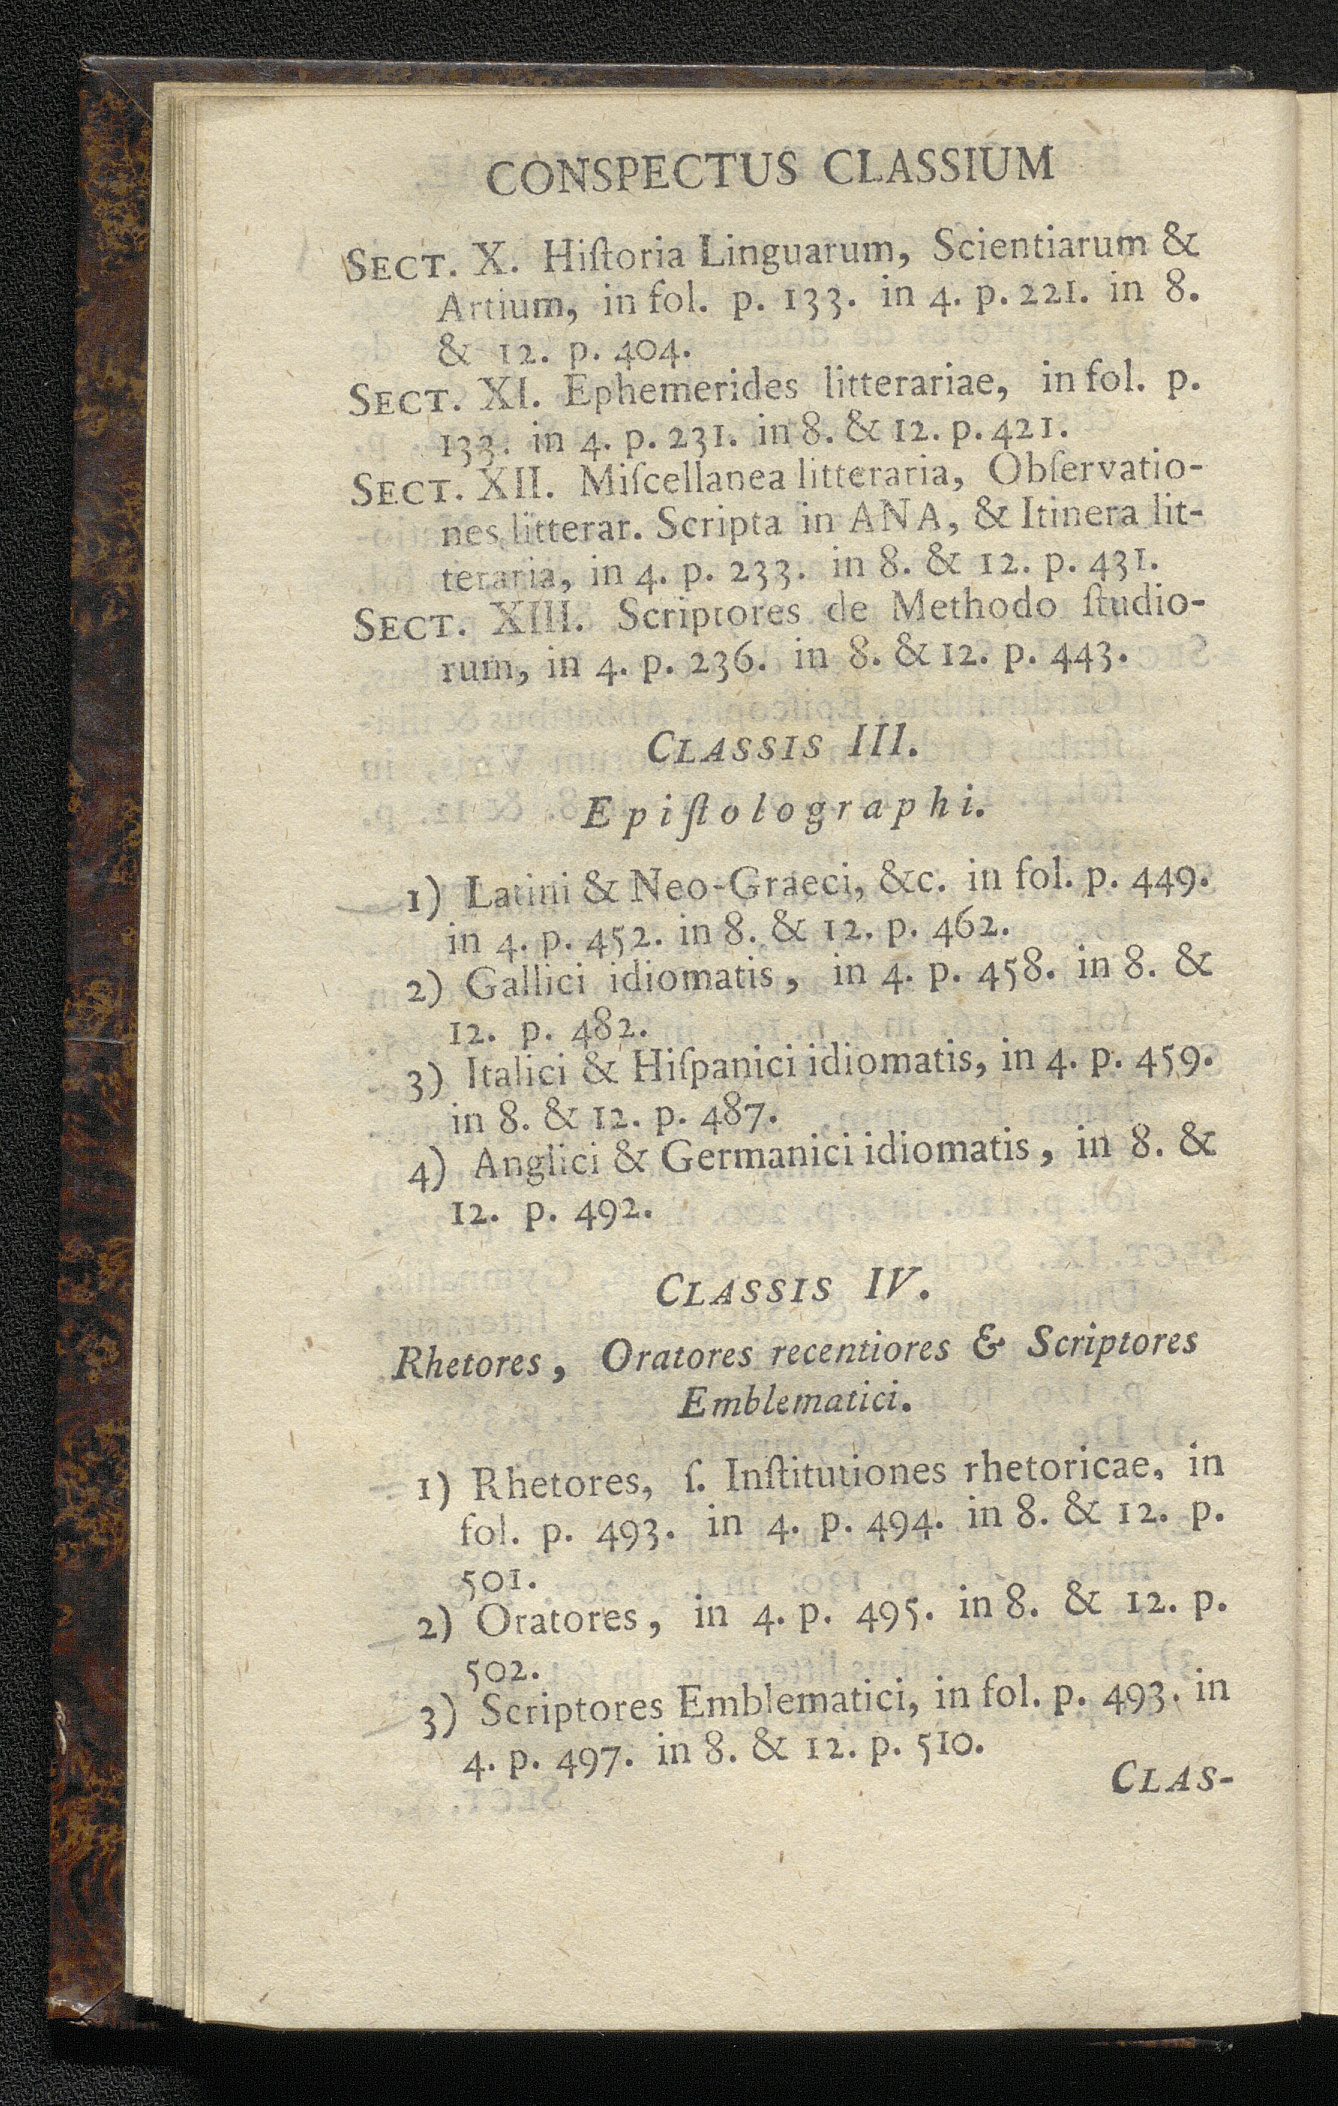 CONSPECTUS CLASSIUM
SECT. X. Hiſtoria Linguarum, Scientiarum &
Artium, in fol. p. 133. in 4. p. 221. in 8.
& 12. p. 404.
SECT. XI. Ephemerides litterariae, in fol. p.
133. in 4. p. 231. in 8. & 12. p. 421.
SECT. XII. Miſcellanea litteraria, Obſervatio-
nes litterar. Scripta in ANA, & Itinera lit-
teraria, in 4. p. 233. in 8. & 12. p. 431.
SECT. XIII. Scriptores de Methodo ſtudio-
rum, in 4. p. 236. in 8. & 12. p. 443.
CLASSIS III.
Epiſtolographi.
1) Latini & Neo-Graeci, &c. in fol. p. 449.
in 4. p. 452. in 8. & 12. p. 462.
2) Gallici idiomatis, in 4. p. 458. in 8. &
12. p. 482.
3) Italici & Hiſpanici idiomatis, in 4. p. 459.
in 8. & 12. p. 487.
4) Anglici & Germanici idiomatis, in 8. &
12. p. 492.
CLASSIS IV.
Rhetores, Oratores recentiores & Scriptores
Emblematici.
1) Rhetores, ſ. Inſtitutiones rhetoricae, in
fol. p. 493. in 4. p. 494. in 8. & 12. p.
501.
2) Oratores, in 4. p. 495. in 8. & 12. p.
502.
3) Scriptores Emblematici, in fol. p. 493. in
4. p. 497. in 8. & 12. p. 510.
CLAS-